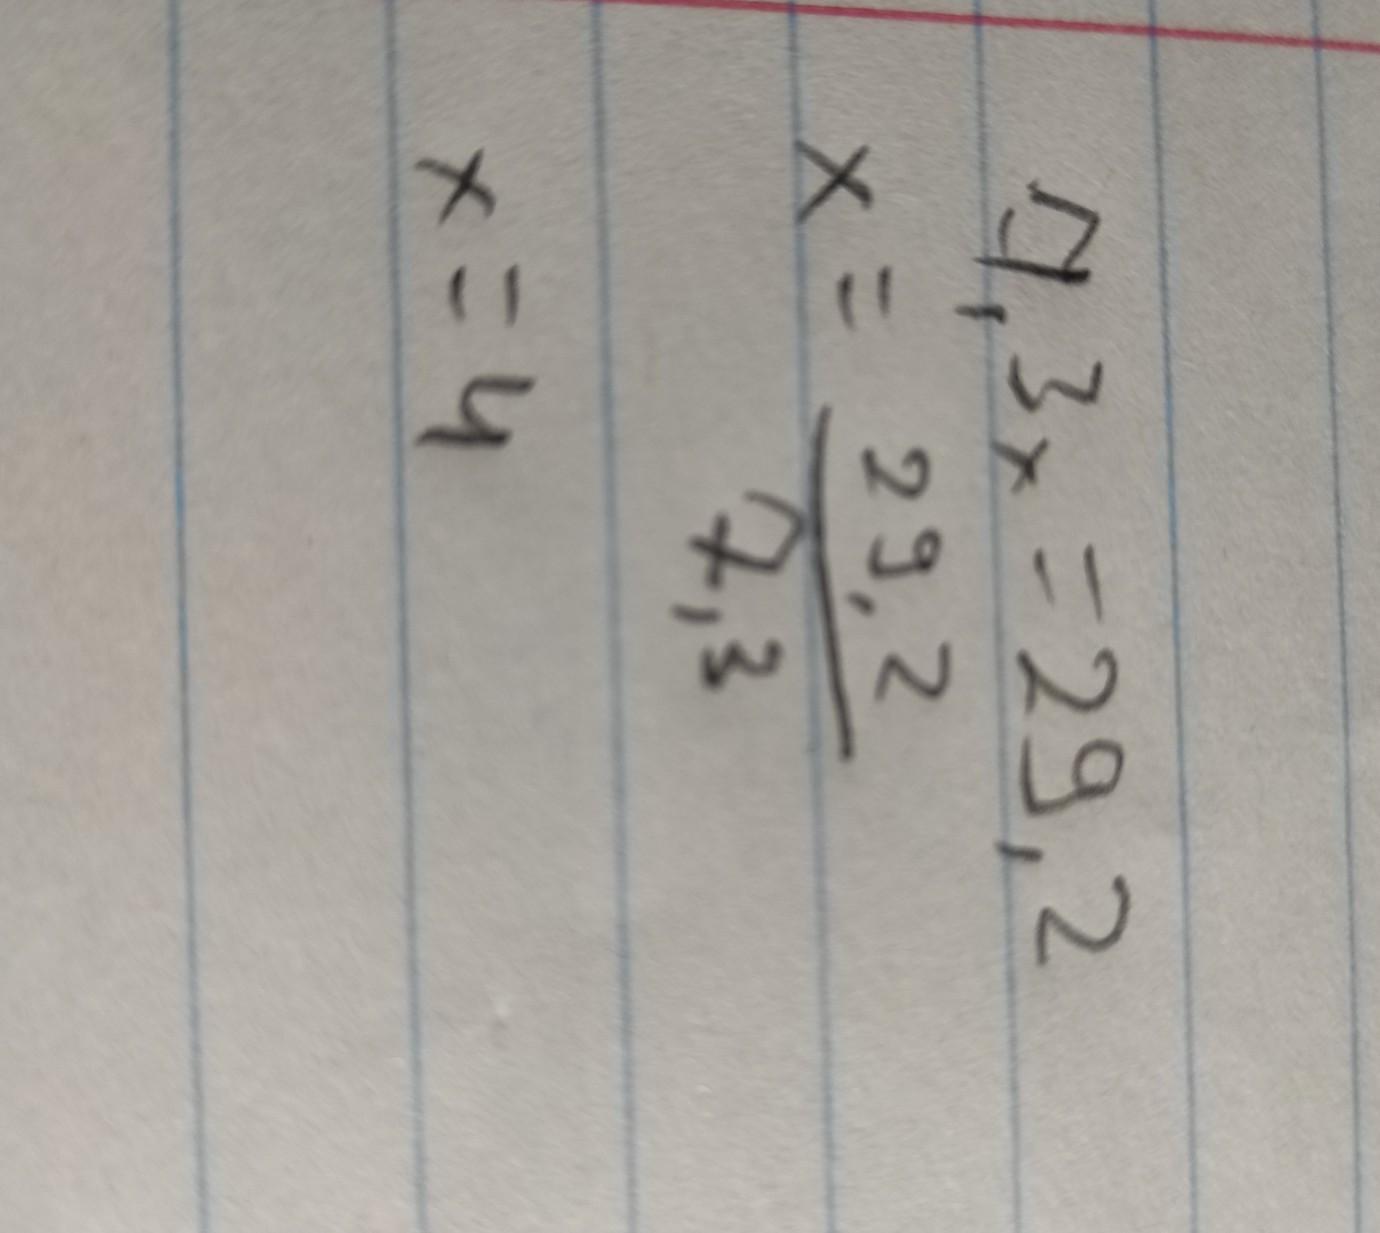 7,3x = 29,2
x = 29,2 / 7,3
x = 4